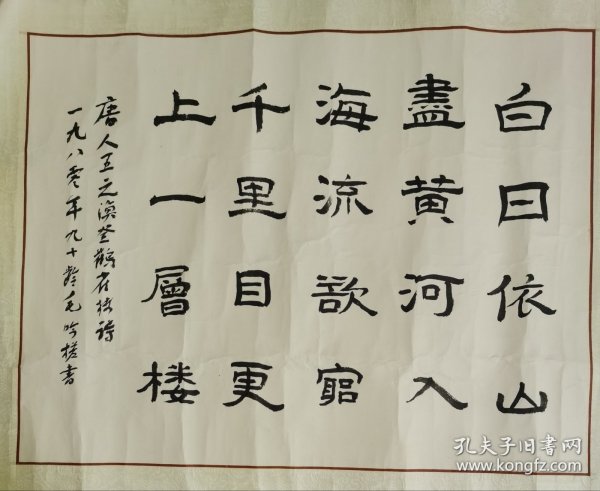 白日依山
盡黄河入
海流欲窮
千里目更
上一層楼
唐人王之渙登鸛雀楼詩
一九八零年九十齡毛吟槎書
孔夫子旧书网
www.kongfz.com